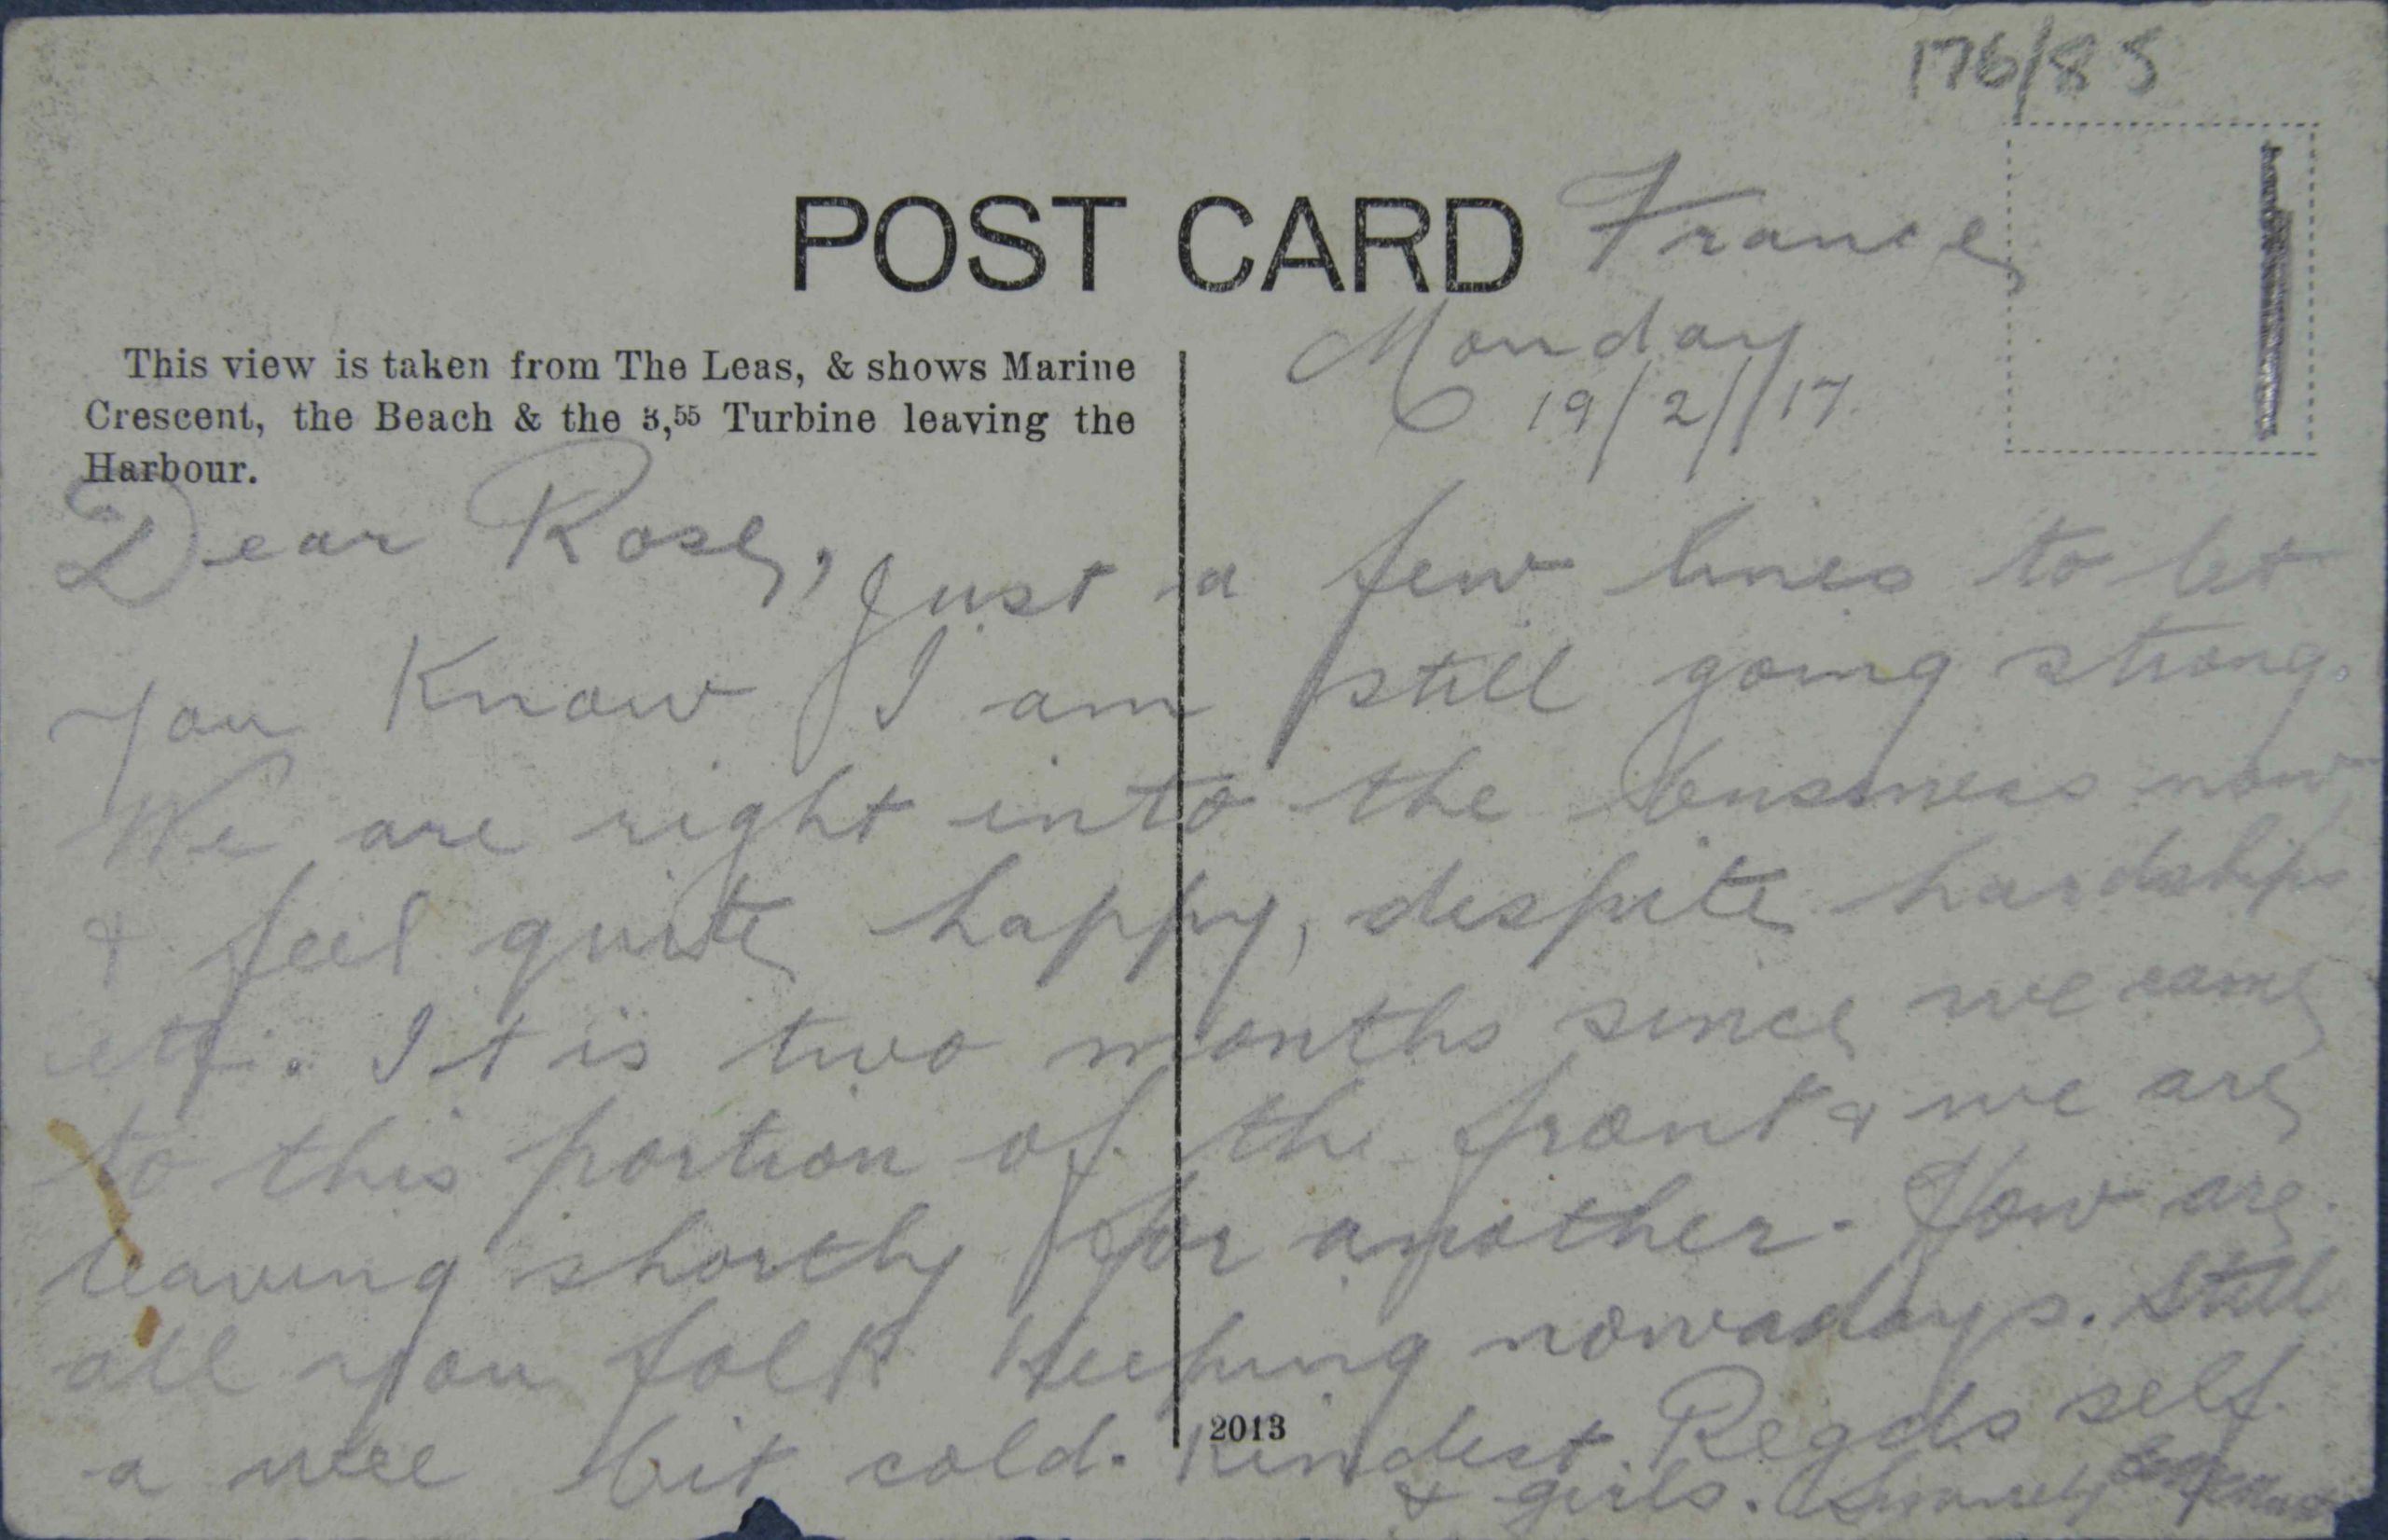 176/85
POST CARD
France
Monday
19/2/17.
This view is taken from The Leas, & shows Marine
Crescent, the Beach & the 3,55 Turbine leaving the
Harbour.
Dear Rose, Just a few lines to let
you Know I am still going strong.
We are right into the business now
& feel quite happy, despite hardships
etc. It is two months since we came
to this portion of the front & we are
leaving shortly for another. How are
all you folk Keeping nowadays. Still
a wee bit cold. Kindest Regds self
& girls. Sincerely
2013